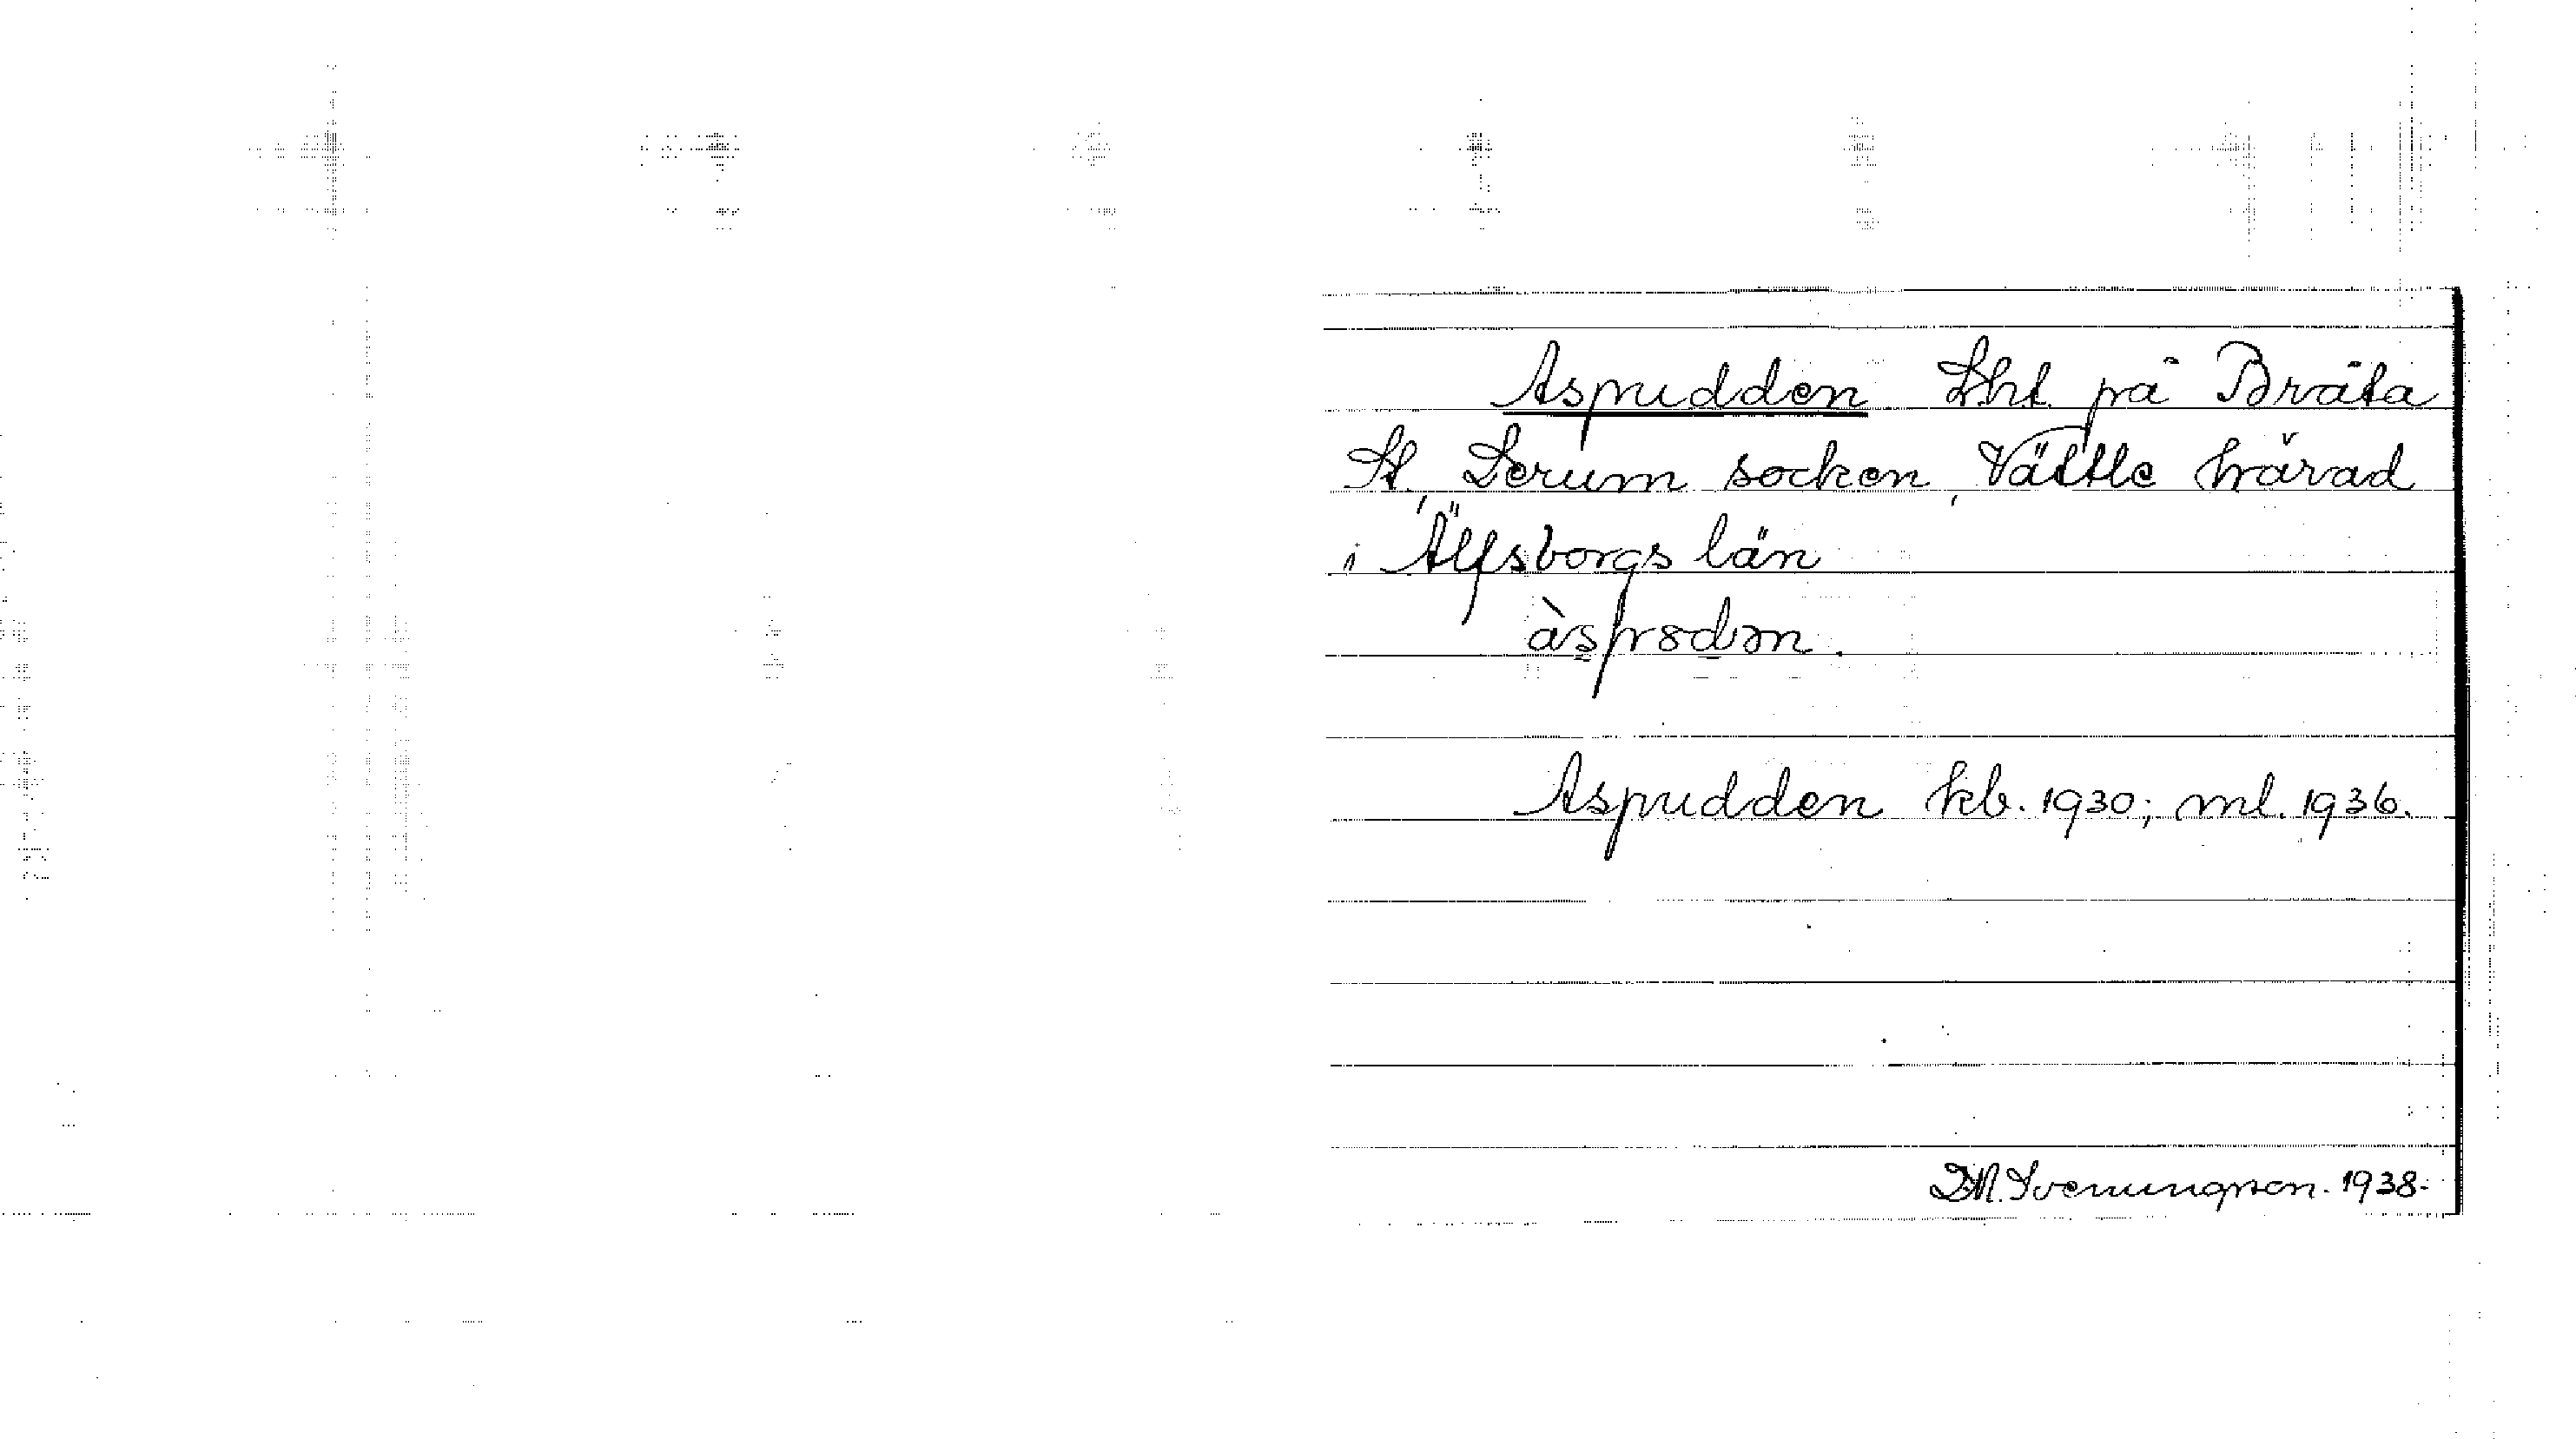 Aspudden Lht på Bråta
St. Lerum socken, Vättle härad
i Älfsborgs län
àspȣdən.
Aspudden kb. 1930; ml. 1936.
D.M. Svenungsson. 1938.